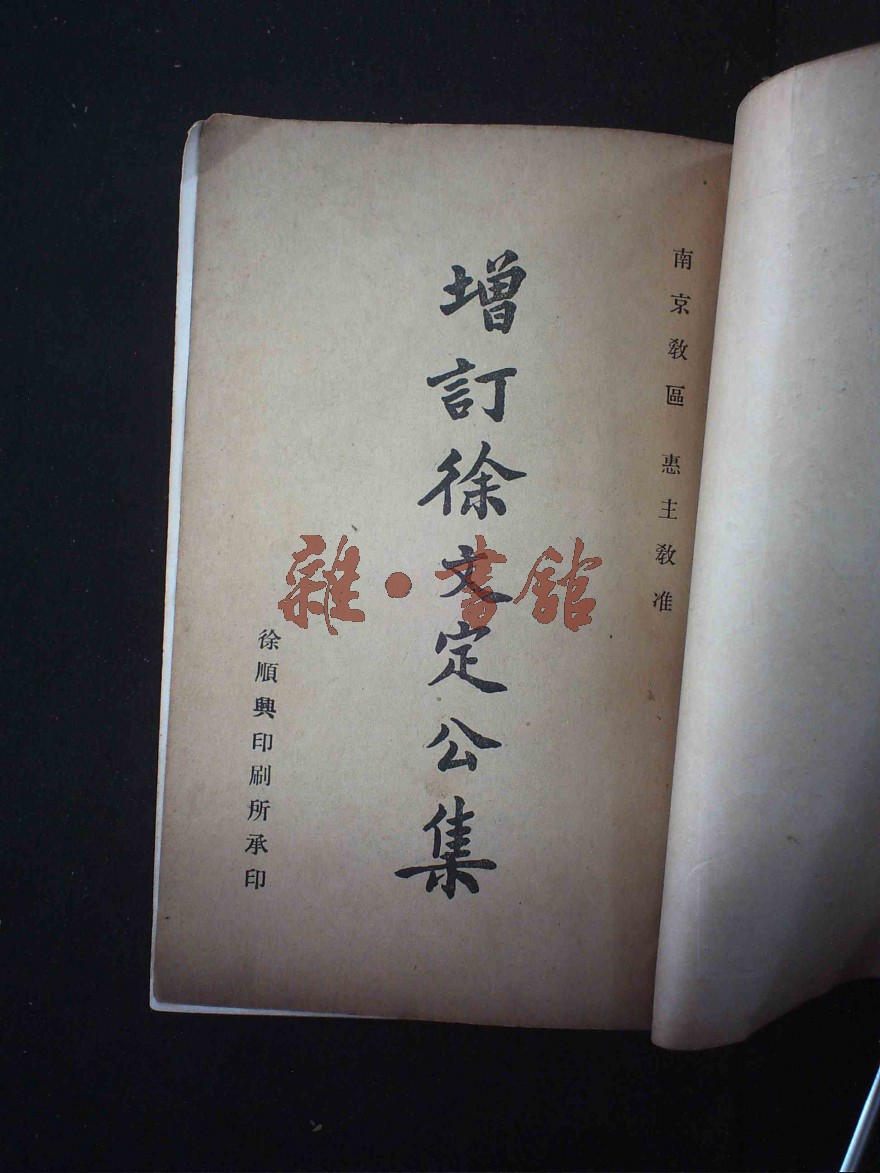 南京教區 惠主教准
增訂徐文定公集
徐順興印刷所承印
雜·書館